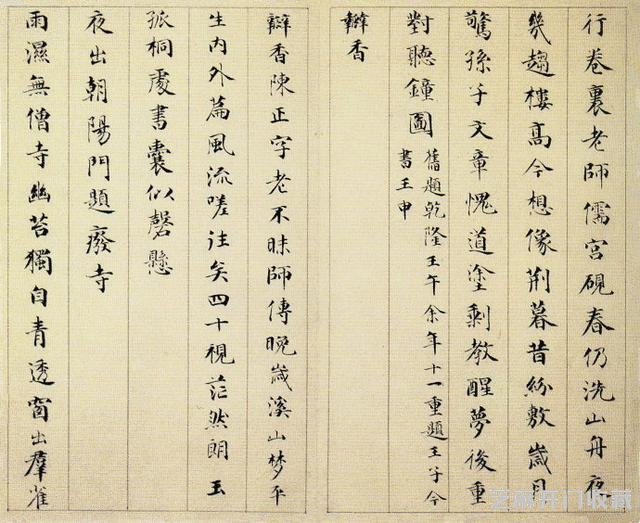 行卷裏老師儒宮硯春仍洗山舟夜
幾趨樓高今想像荆暮昔紛敷歲月
驚孫子文章愧道塗剩教醒夢後重
對聽鐘圖
舊題乾隆壬午余年十一重題壬子今
書壬申
辯香
辯香陳正字老不昧師傳晚歲溪山夢平
生内外篇風流嗟往矣四十視茫然朗玉
孤桐處書囊似磬懸
夜出朝陽門題廢寺
雨濕無僧寺幽苔獨自青透窗出羣雀